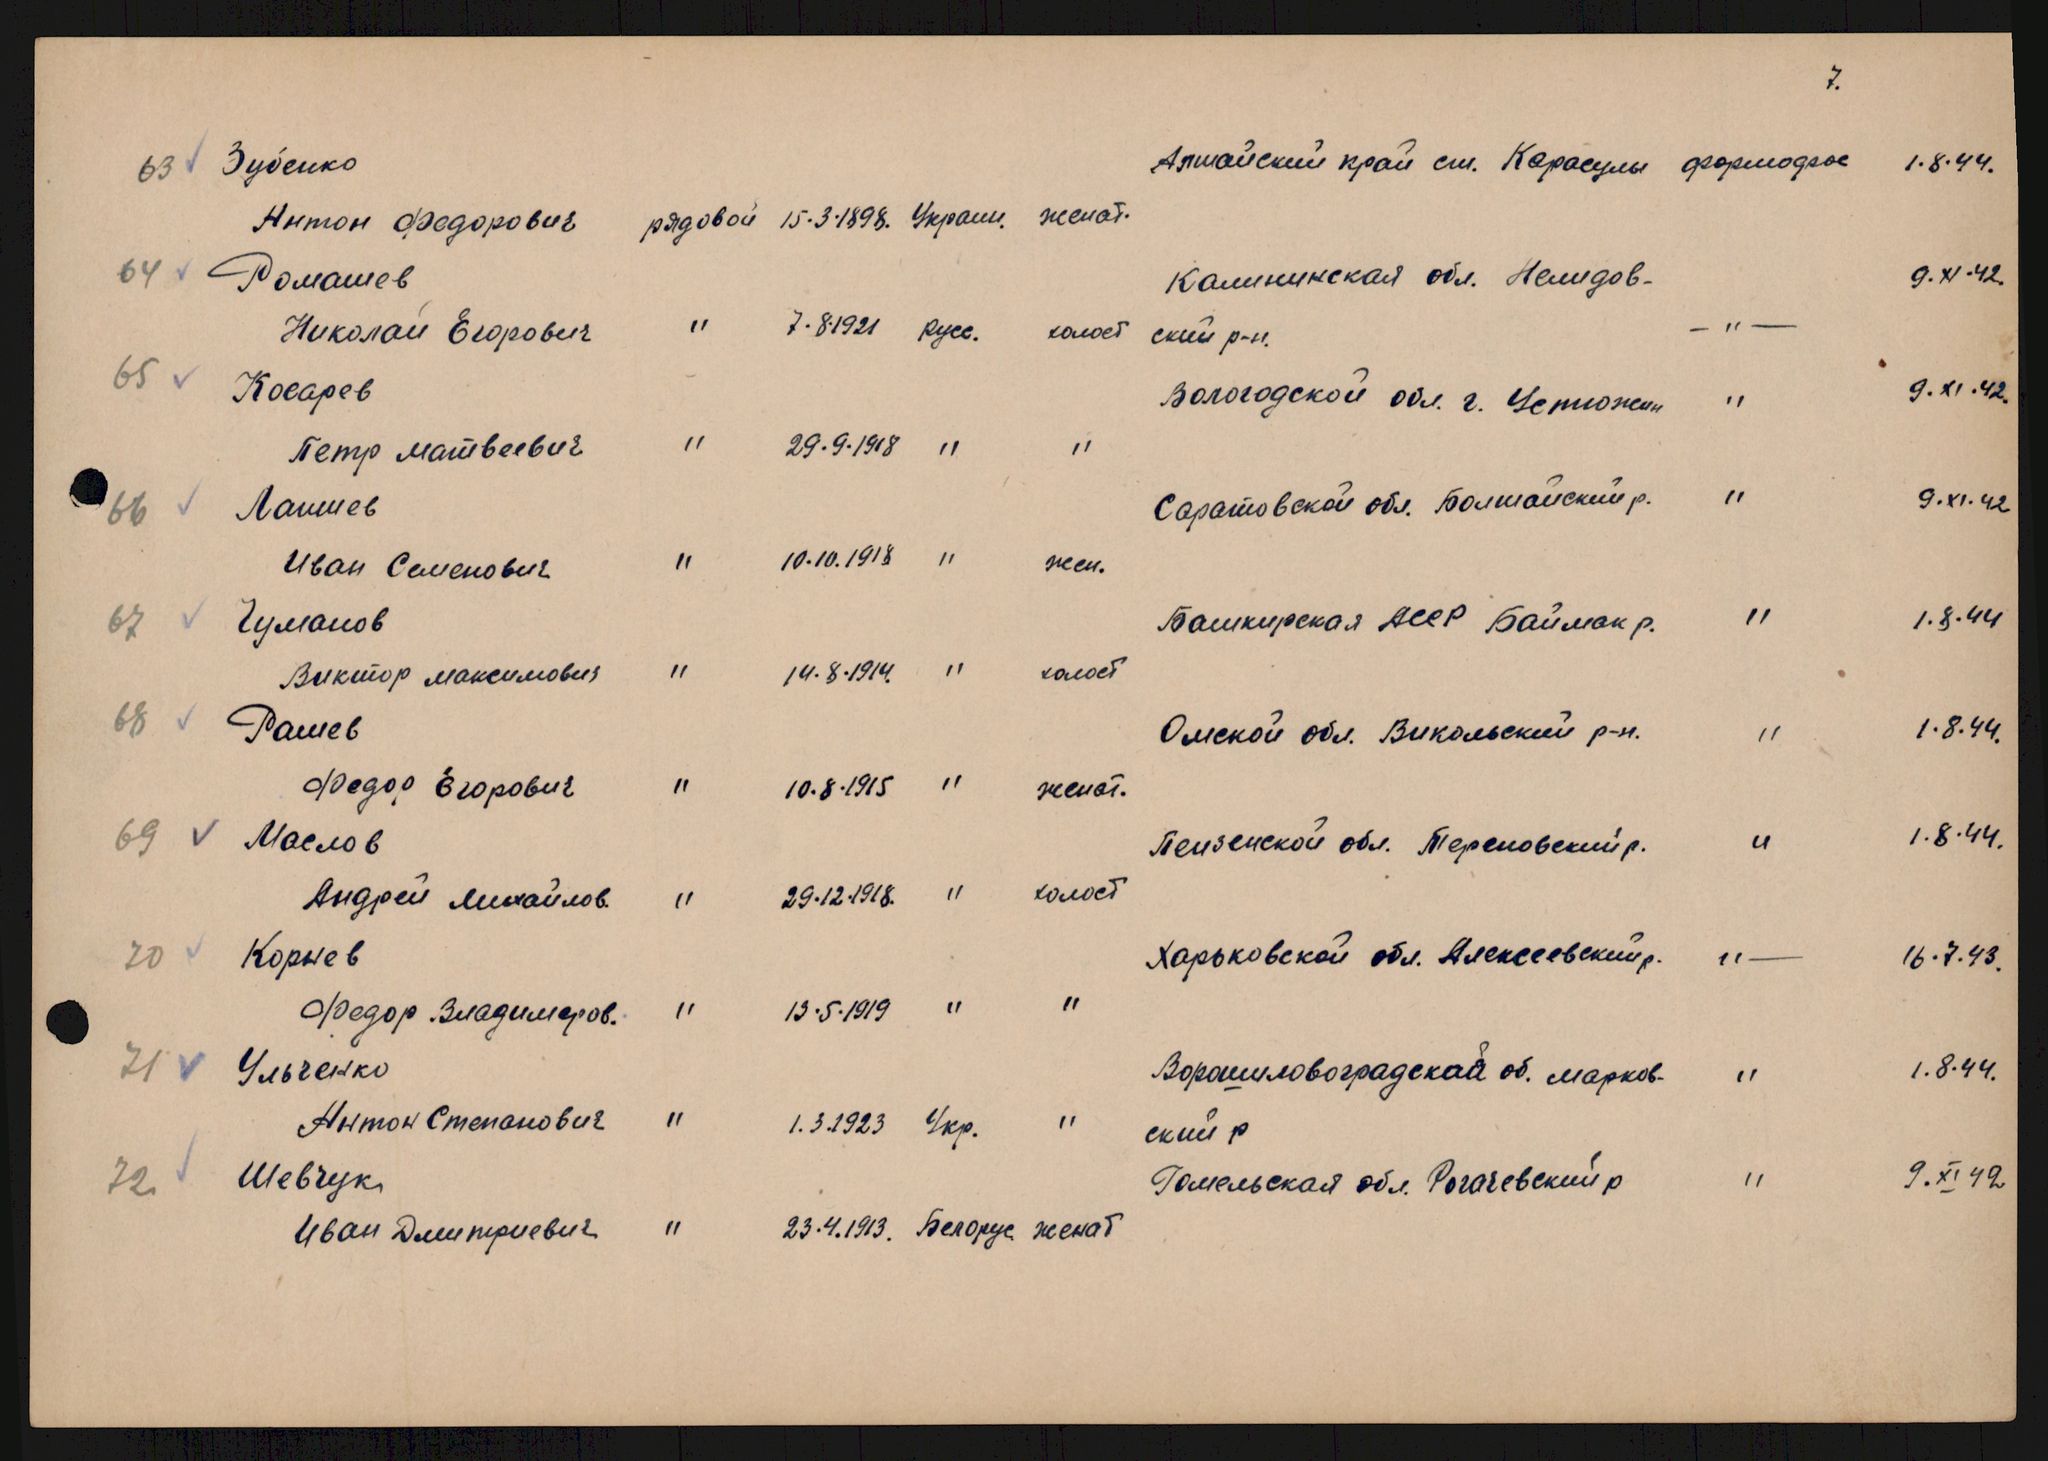 7.
63 ✓ Зубенко Алтайский край ст. Карасулы 1.8.44.
Антон Федорович рядовой 15.3.1898. Украин. женат.
64 ✓ Ромашев Калининская обл. Нелидов- 9.XI.42.
Николай Егорович " 7.8.1921 Русс. холост ский р-н. — " —
65 ✓ Косарев Вологодской обл. г. Устюжин " 9.XI.42.
Петр Матвеевич " 29.9.1918 " "
66 ✓ Лапшев Саратовской обл. Балтайский р. " 9.XI.42
Иван Семенович " 10.10.1918 " жен.
67 ✓ Чуманов Башкирская АССР Баймак р. " 1.8.44
Виктор Максимович " 14.8.1914. " холост
68 ✓ Рашев Омской обл. Викольский р-н. " 1.8.44.
Федор Егорович " 10.8.1915 " женат.
69 ✓ Маслов Пензенской обл. Терновский р. " 1.8.44.
Андрей Михайлов. " 29.12.1918. " холост
70 ✓ Корнев Харьковской обл. Алексеевский р. " — 16.7.43.
Федор Владимиров. " 13.5.1919 " "
71 ✓ Ульченко Ворошиловоградской об. Марков- " 1.8.44.
Антон Степанович " 1.3.1923 Укр. " ский р
72. ✓ Шевчук Гомельская обл. Рогачевский р " 9.XI 42
Иван Дмитриевич " 23.4.1913. Белорус. женат